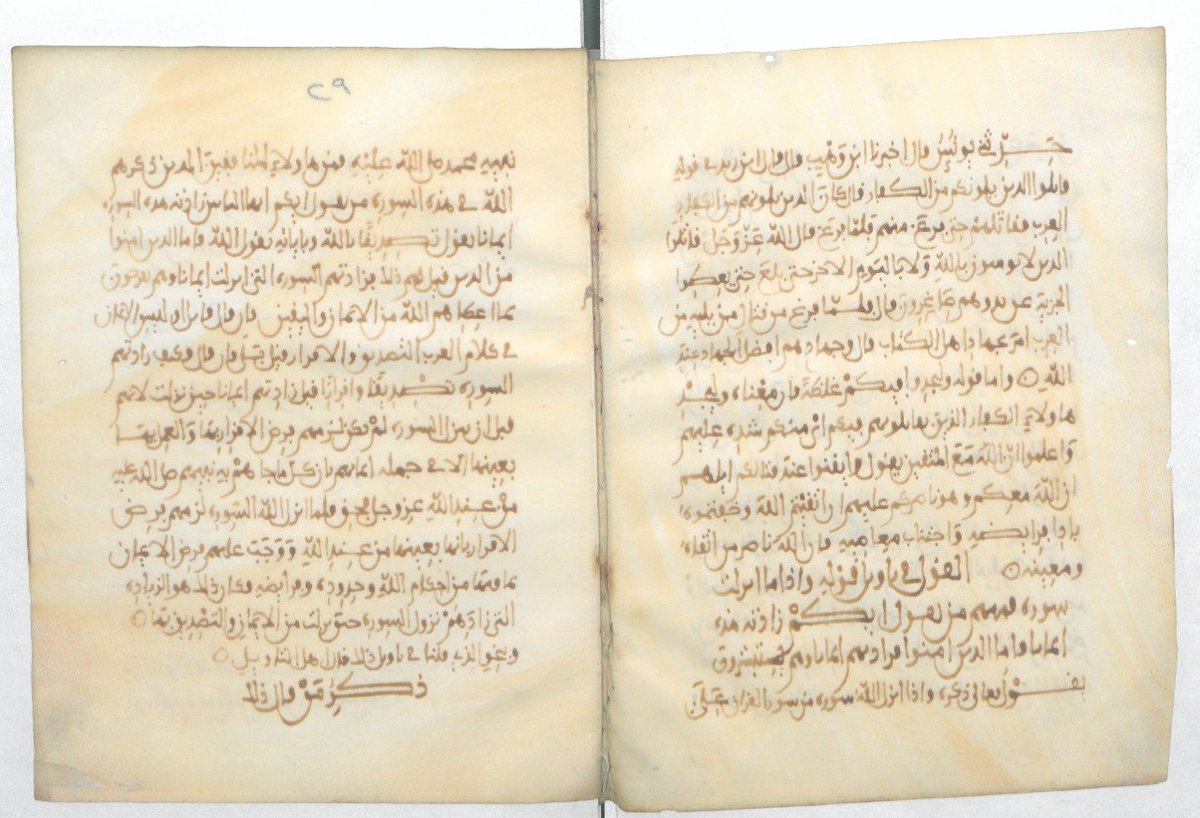 حدثني يونس قال اخبرنا ابن وهب قال قال ابن زيد في قوله
قاتلوا الذين يلونكم من الكفار قال كان الذين يلونهم من الكفار
العرب فقاتلهم حتى فرغ منهم فلما فرغ قال الله عز وجل قاتلوا
الذين لا يومنون بالله ولا باليوم الاخر حتى بلغ حتى يعطوا
الجزية عن يد وهم صاغرون قال ولما فرغ من قتال من يليه من
العرب امره بجهاد اهل الكتاب قال وجهادهم افضل الجهاد عند
الله ○ واما قوله وليجدوا فيكم غلظة فان معناه وليجد
هاولاء الكفار الذين تقاتلونهم فيكم اي منكم شدة عليهم
واعلموا ان الله مع المتقين يقول وايقنوا عند قتالكم اياهم
ان الله معكم وهو ناصركم عليهم ان اتقيتم الله وخفتموه
باداء فرايضه واجتناب معاصيه فان الله ناصر من اتقاه
ومعينه ○ القول في تاويل قوله واذا ما انزلت
سورة فمنهم من يقول ايكم زادته هذه
ايمانا فاما الذين امنوا فزادتهم ايمانا وهم يستبشرون
يقول تعالى ذكره واذا انزل الله سورة من سور القران على
٢٩
نبيه محمد صلى الله عليه فمن هاولاء المنافقين الذين ذكرهم
الله في هذه السورة من يقول ايكم ايها الناس زادته هذه السورة
ايمانا يقول تصديقا بالله وباياته يقول الله فاما الذين امنوا
من الذين قيل لهم ذلك فزادتهم السورة التي انزلت ايمانا وهم يفرحون
بما اعطاهم الله من الايمان واليقين فان قال قايل اوليس الايمان
في كلام العرب التصديق والاقرار قيل بلى فان قال وكيف زادتهم
السورة تصديقا واقرارا قيل زادتهم ايمانا حين نزلت لانهم
قبل ان تنزل السورة لم يكن لزمهم فرض الاقرار بها والعمل بها
بعينها الا في جملة ايمانهم بان كل ما جاهم به نبيهم صلى الله عليه
من عند الله عز وجل فحق فلما انزل الله السورة لزمهم فرض
الاقرار بانها بعينها من عند الله ووجب عليهم فرض الايمان
بما فيها من احكام الله وحدوده وفرايضه فكان ذلك هو الزيادة
التي زادهم نزول السورة حين نزلت من الايمان والتصديق بها ○
وبنحو الذي قلنا في تاويل ذلك قال اهل التاويل ○
ذكر من قال ذلك